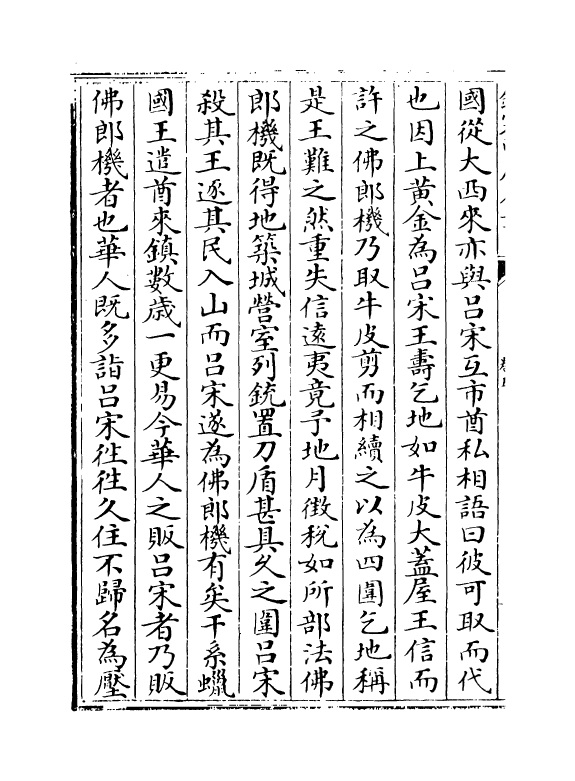 國從大西來亦與吕宋互市酋私相語曰彼可取而代
也因上黄金為吕宋王壽乞地如牛皮大蓋屋王信而
許之佛郎機乃取牛皮剪而相續之以為四圍乞地稱
是王難之然重失信遠夷竟予地月徵稅如所部法佛
郎機既得地築城營室列銃置刀盾甚具乆之圍吕宋
殺其王逐其民入山而吕宋遂為佛郎機有矣干系蠟
國王遣酋來鎮數歳一更易今華人之販吕宋者乃販
佛郎機者也華人既多詣吕宋徃徃久住不歸名為壓